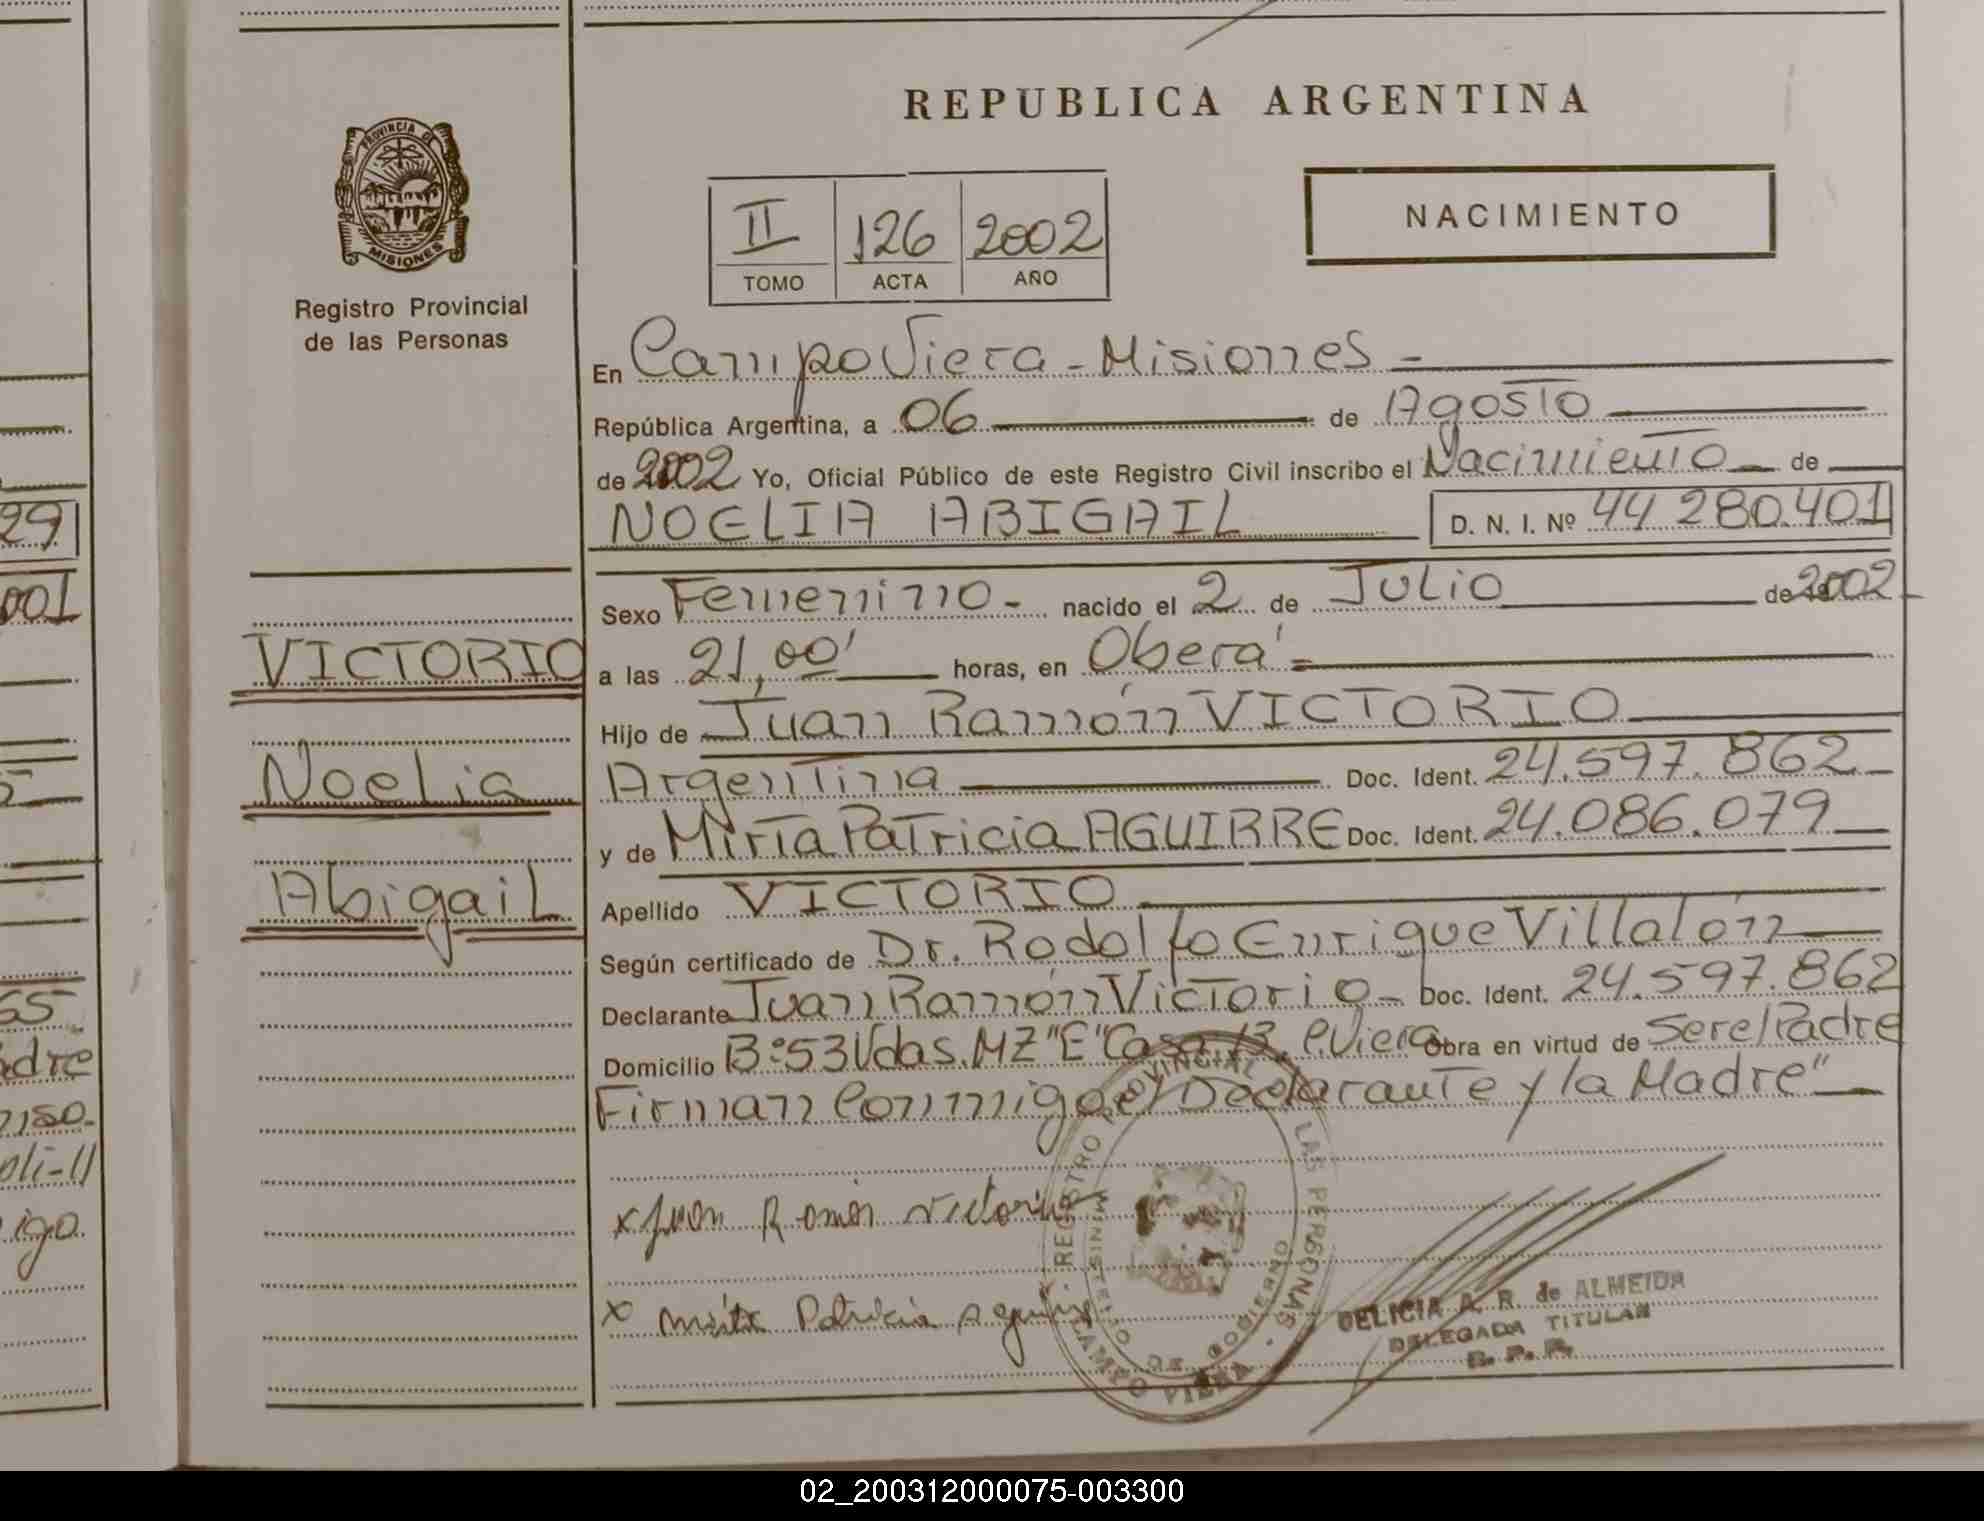 REPUBLICA ARGENTINA
PROVINCIA DE
MISIONES
Registro Provincial
de las Personas
II 126 2002
TOMO ACTA AÑO
NACIMIENTO
En Campo Viera - Misiones -
República Argentina, a 06 de Agosto
de 2002 Yo, Oficial Público de este Registro Civil inscribo el Nacimiento de
NOELIA ABIGAIL D. N. I. Nº 44 280.401
Sexo Femenino - nacido el 2 de Julio de 2002 -
a las 21,00' horas, en Oberá =
Hijo de Juan Ramón VICTORIO
Argentina Doc. Ident. 24.597.862
y de Mirta Patricia AGUIRRE Doc. Ident. 24.086.079
Apellido VICTORIO
Según certificado de Dr. Rodolfo Enrique Villalón
Declarante Juan Ramón Victorio - Doc. Ident. 24.597.862
Domicilio Bº 53 Vdas. MZ "E" Casa 13, C. Viera Obra en virtud de Ser el Padre
Firman Conmigo el Declarante y la Madre"
VICTORIO
Noelia
Abigail
x Juan Ramón Victorio
x Mirta Patricia Aguirre
REGISTRO PROVINCIAL DE LAS PERSONAS
MINISTERIO DE GOBIERNO
CAMPO VIERA
DELICIA A. R. de ALMEIDA
DELEGADA TITULAR
R. P. P.
29
001
5
55
adre
niso.
oli-11
igo.
02_200312000075-003300